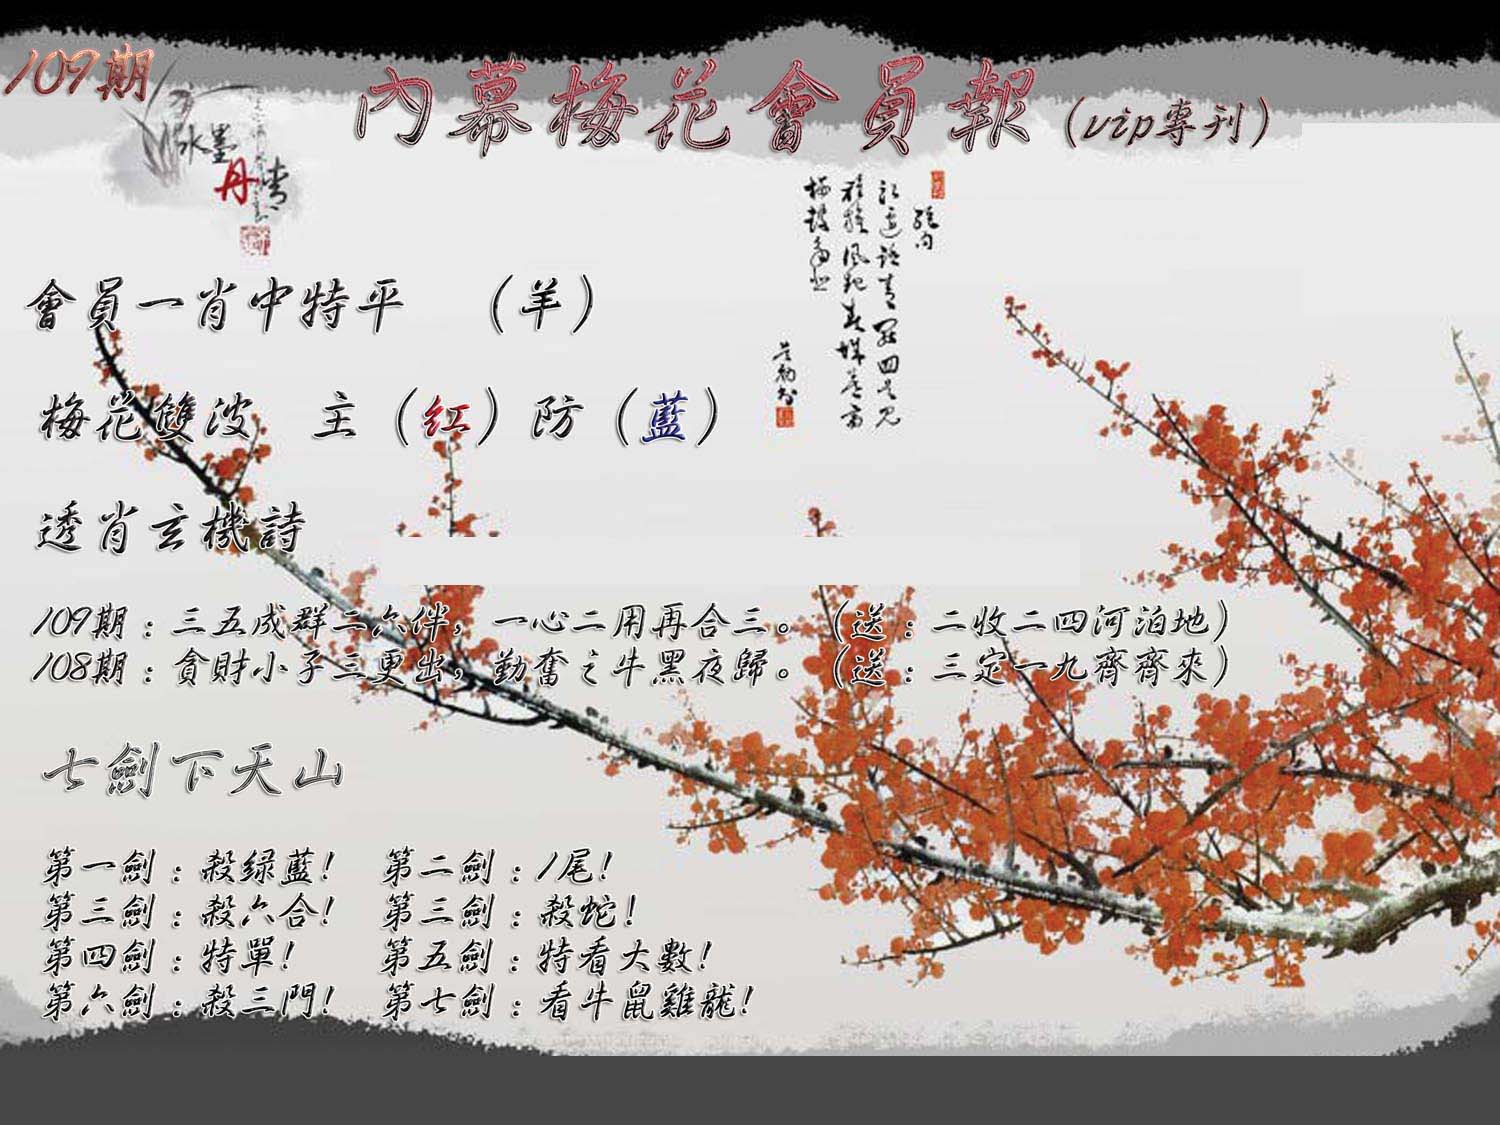 109期
內幕梅花會員報(vip專刊)
水墨
丹青
會員一肖中特平 (羊)
梅花雙波 主(紅)防(藍)
透肖玄機詩
109期:三五成群二六伴,一心二用再合三。(送:二收二四河泊地)
108期:貪財小子三更出,勤奮之牛黑夜歸。(送:三定一九齊齊來)
七劍下天山
第一劍:殺绿藍! 第二劍:1尾!
第三劍:殺六合! 第三劍:殺蛇!
第四劍:特單! 第五劍:特看大數!
第六劍:殺三門! 第七劍:看牛鼠雞龍!